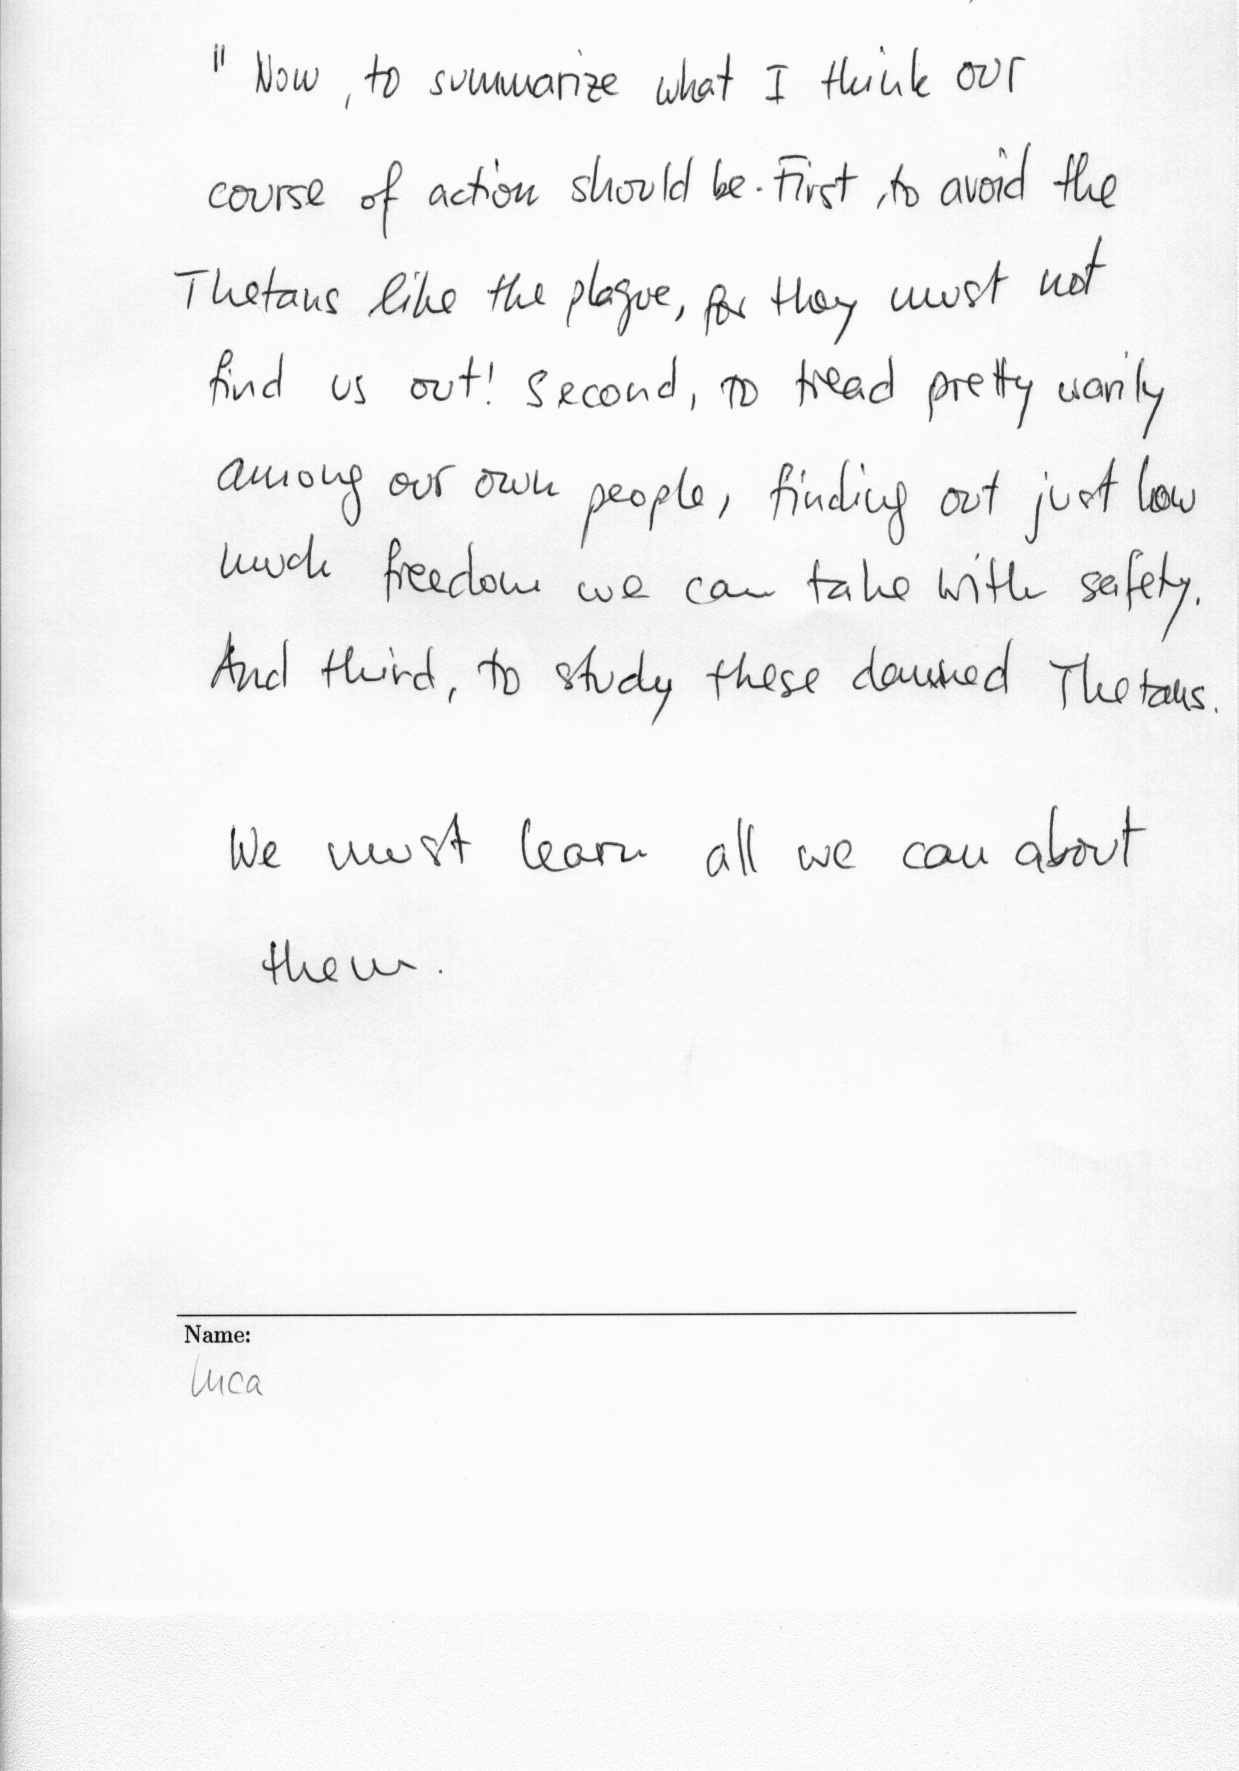 " Now, to summarize what I think our
course of action should be. First, to avoid the
Thetans like the plague, for they must not
find us out! Second, to tread pretty warily
among our own people, finding out just how
much freedom we can take with safety.
And third, to study these damned Thetans.
We must learn all we can about
them.
Name:
Luca